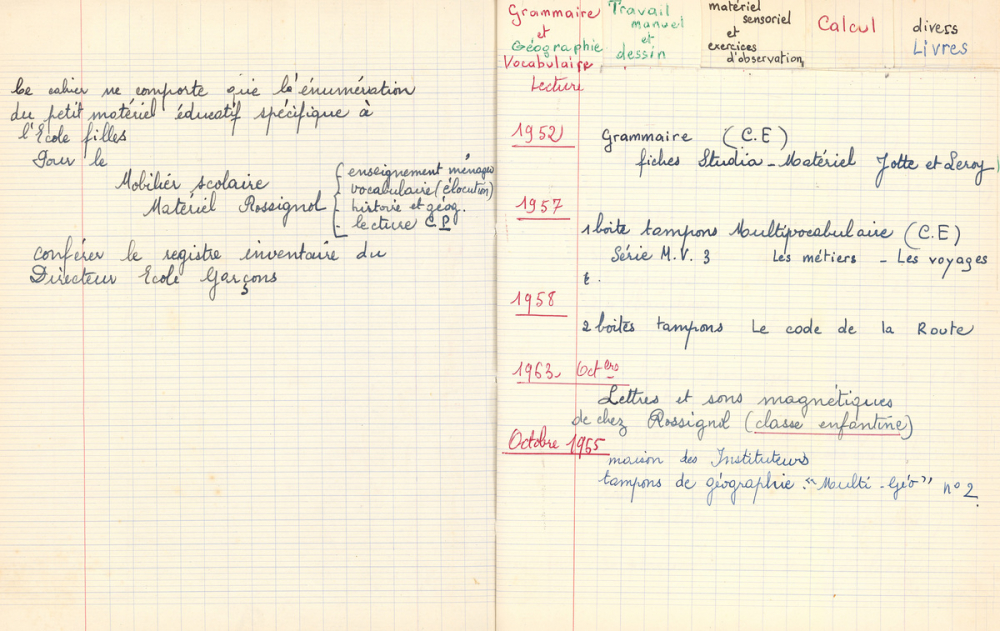 Ce cahier ne comporte que l'énumération
du petit matériel éducatif spécifique à
l'Ecole filles
Pour le
Mobilier scolaire
Matériel Rossignol
enseignement ménager
vocabulaire (élocution)
histoire et géog.
lecture C P
conférer le registre inventaire du
Directeur Ecole Garçons
Grammaire
et
Géographie
Vocabulaire
Lecture
Travail
manuel
et
dessin
matériel
sensoriel
et
exercices
d'observation
Calcul
divers
Livres
1952
Grammaire (C.E)
fiches Studia - Matériel Jotte et Leroy
1957
1 boîte tampons Multivocabulaire (C.E)
Série M.V. 3 Les métiers - Les voyages
1958
2 boîtes tampons Le code de la Route
1963
Lettres et sons magnétiques
de chez Rossignol (classe enfantine)
Octobre 1965
maison des Instituteurs
tampons de géographie "Multi-Géo" n° 2